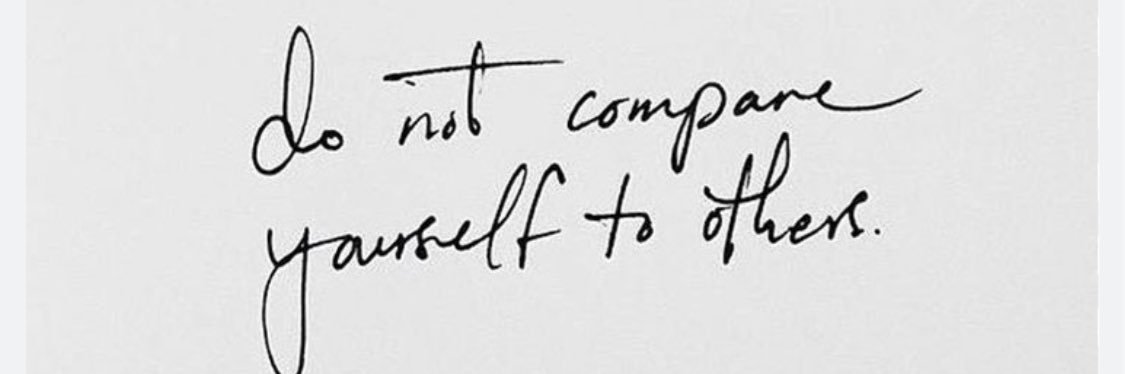 do not compare
yourself to others.